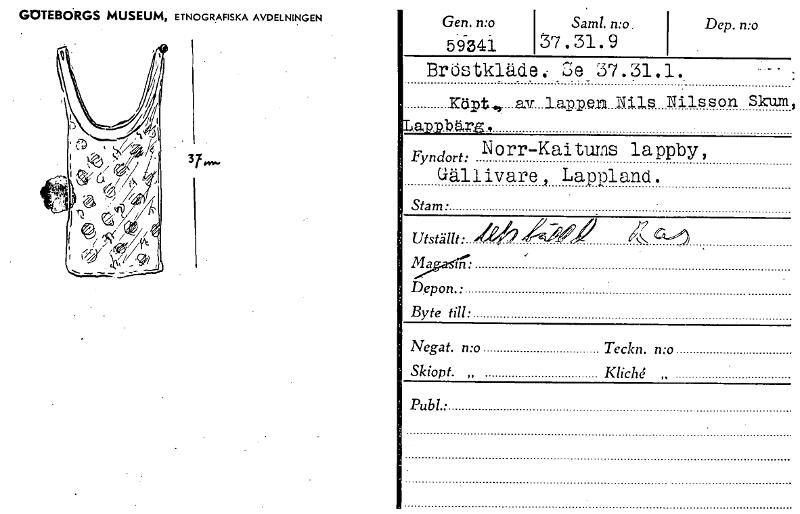 GÖTEBORGS MUSEUM, ETNOGRAFISKA AVDELNINGEN
37 cm
Gen. n:o Saml. n:o Dep. n:o
59341 37.31.9
Bröstkläde. Se 37.31.1.
Köpt. av lappen Nils Nilsson Skum,
Lappbärg.
Fyndort: Norr-Kaitums lappby,
Gällivare, Lappland.
Stam:
Utställt: utställd
Magasin:
Depon.:
Byte till:
Negat. n:o Teckn. n:o
Skiopt. „ Kliché „
Publ.: